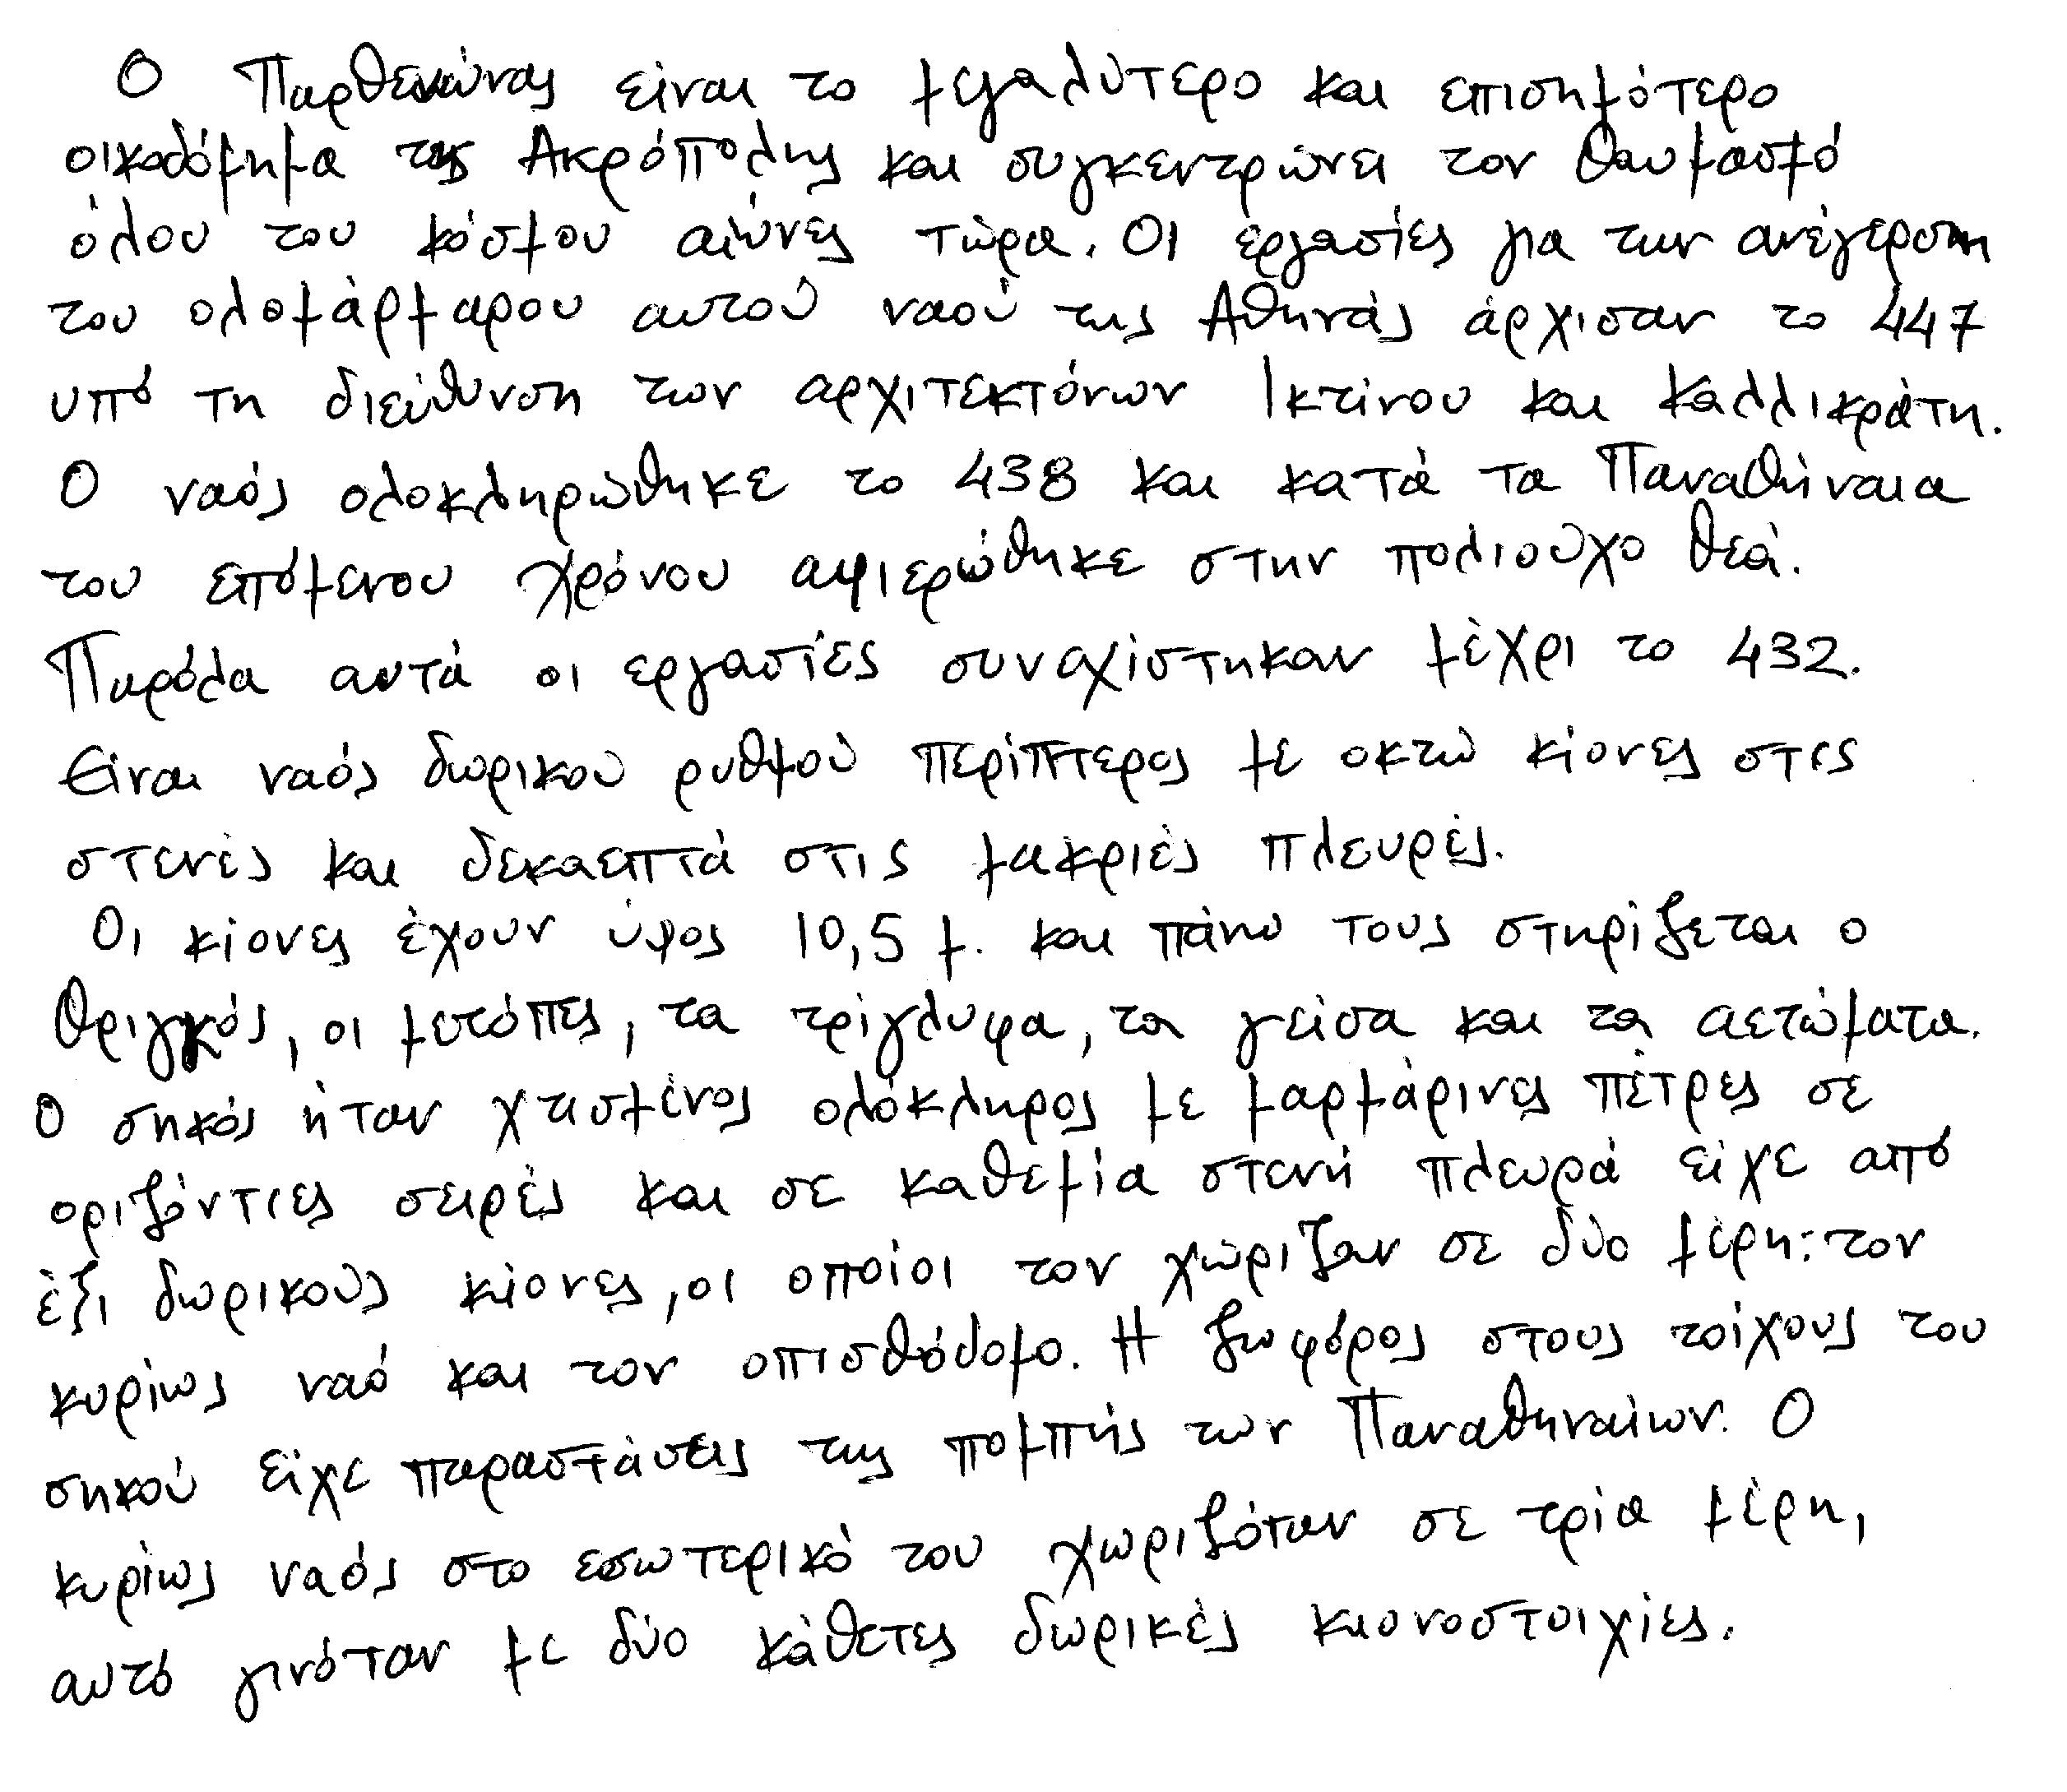 Ο Παρθενώνας είναι το μεγαλύτερο και επισημότερο
οικοδόμημα της Ακρόπολης και συγκεντρώνει τον θαυμασμό
όλου του κόσμου αιώνες τώρα. Οι εργασίες για την ανέγερση
του ολομάρμαρου αυτού ναού της Αθηνάς άρχισαν το 447
υπό τη διεύθυνση των αρχιτεκτόνων Ικτίνου και Καλλικράτη.
Ο ναός ολοκληρώθηκε το 438 και κατά τα Παναθήναια
του επόμενου χρόνου αφιερώθηκε στην πολιούχο θεά.
Παρόλα αυτά οι εργασίες συνεχίστηκαν μέχρι το 432.
Είναι ναός δωρικού ρυθμού περίπτερος με οκτώ κίονες στις
στενές και δεκαεπτά στις μακριές πλευρές.
Οι κίονες έχουν ύψος 10,5 μ. και πάνω τους στηρίζεται ο
θριγκός, οι μετόπες, τα τρίγλυφα, τα γείσα και τα αετώματα.
Ο σηκός ήταν χτισμένος ολόκληρος με μαρμάρινες πέτρες σε
οριζόντιες σειρές και σε καθεμία στενή πλευρά είχε από
έξι δωρικούς κίονες, οι οποίοι τον χώριζαν σε δύο μέρη: τον
κυρίως ναό και τον οπισθόδομο. Η ζωφόρος στους τοίχους του
σηκού είχε παραστάσεις της πομπής των Παναθηναίων. Ο
κυρίως ναός στο εσωτερικό του χωριζόταν σε τρία μέρη,
αυτό γινόταν με δύο κάθετες δωρικές κιονοστοιχίες.